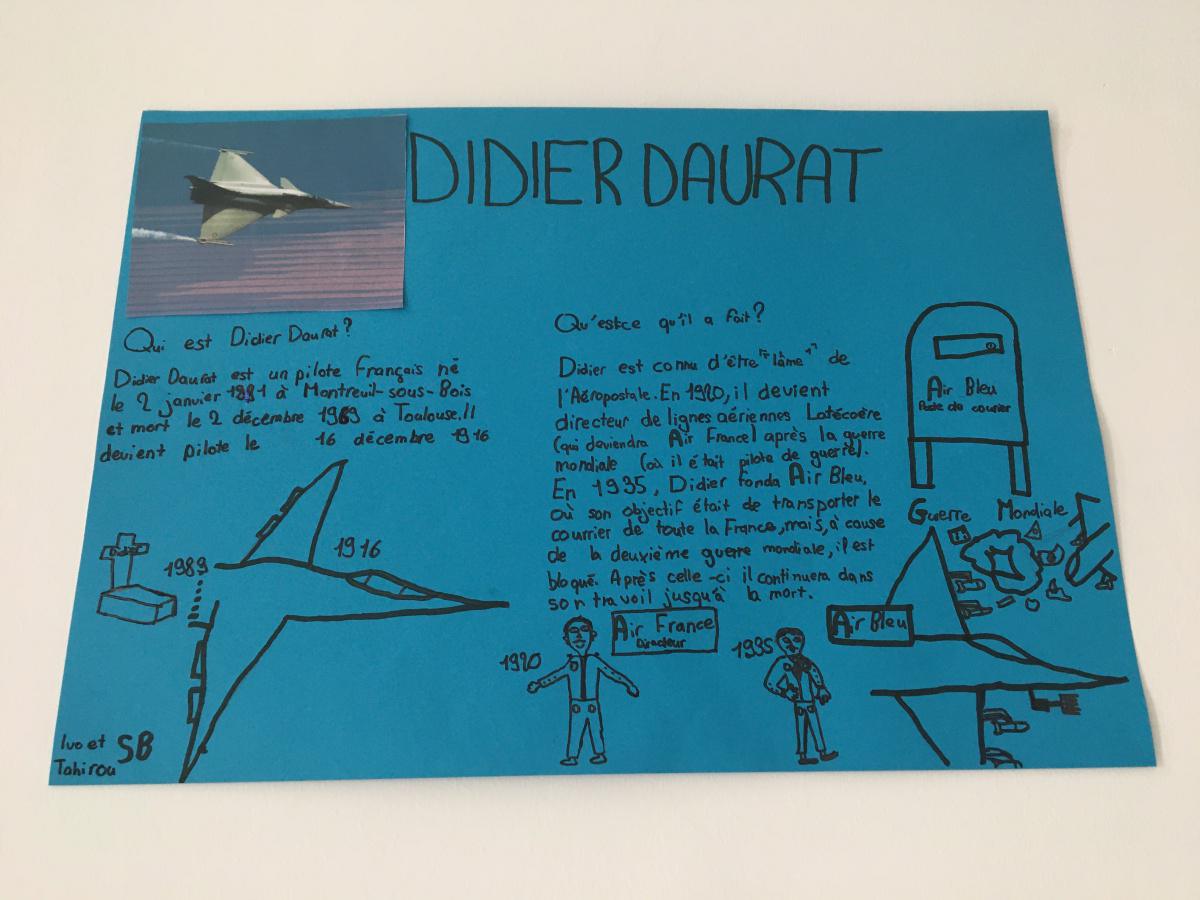 DIDIER DAURAT
Qui est Didier Daurat?
Didier Daurat est un pilote Français né
le 2 janvier 1891 à Montreuil-sous-Bois
et mort le 2 décembre 1969 à Toulouse. Il
devient pilote le 16 décembre 1916
Qu'estce qu'il a fait?
Didier est connu d'être "lâme" de
l'Aéropostale. En 1920, il devient
directeur de lignes aériennes Latécoère
(qui deviendra Air France) après la guerre
mondiale (où il était pilote de guerre).
En 1935, Didier fonda Air Bleu,
où son objectif était de transporter le
courrier de toute la France, mais, à cause
de la deuxième guerre mondiale, il est
bloqué. Après celle-ci il continuera dans
son travail jusqu'à la mort.
Air Bleu
Poste de courrier
Guerre Mondiale
1916
1989
1920
Air France
Directeur
1935
Air Bleu
Ivo et
Tahirou
5B